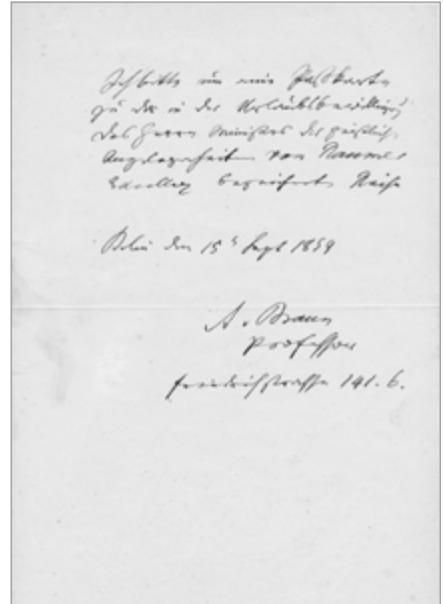 Ich bitte um eine Paßkarte
zu der in der Urlaubsbewilligung
des Herrn Ministers der geistlich.
Angelegenheiten von Raumer
Excellenz bezeichneten Reise
Berlin den 15t Sept 1854
A. Braun
Professor
Friedrichstrasse 141. b.